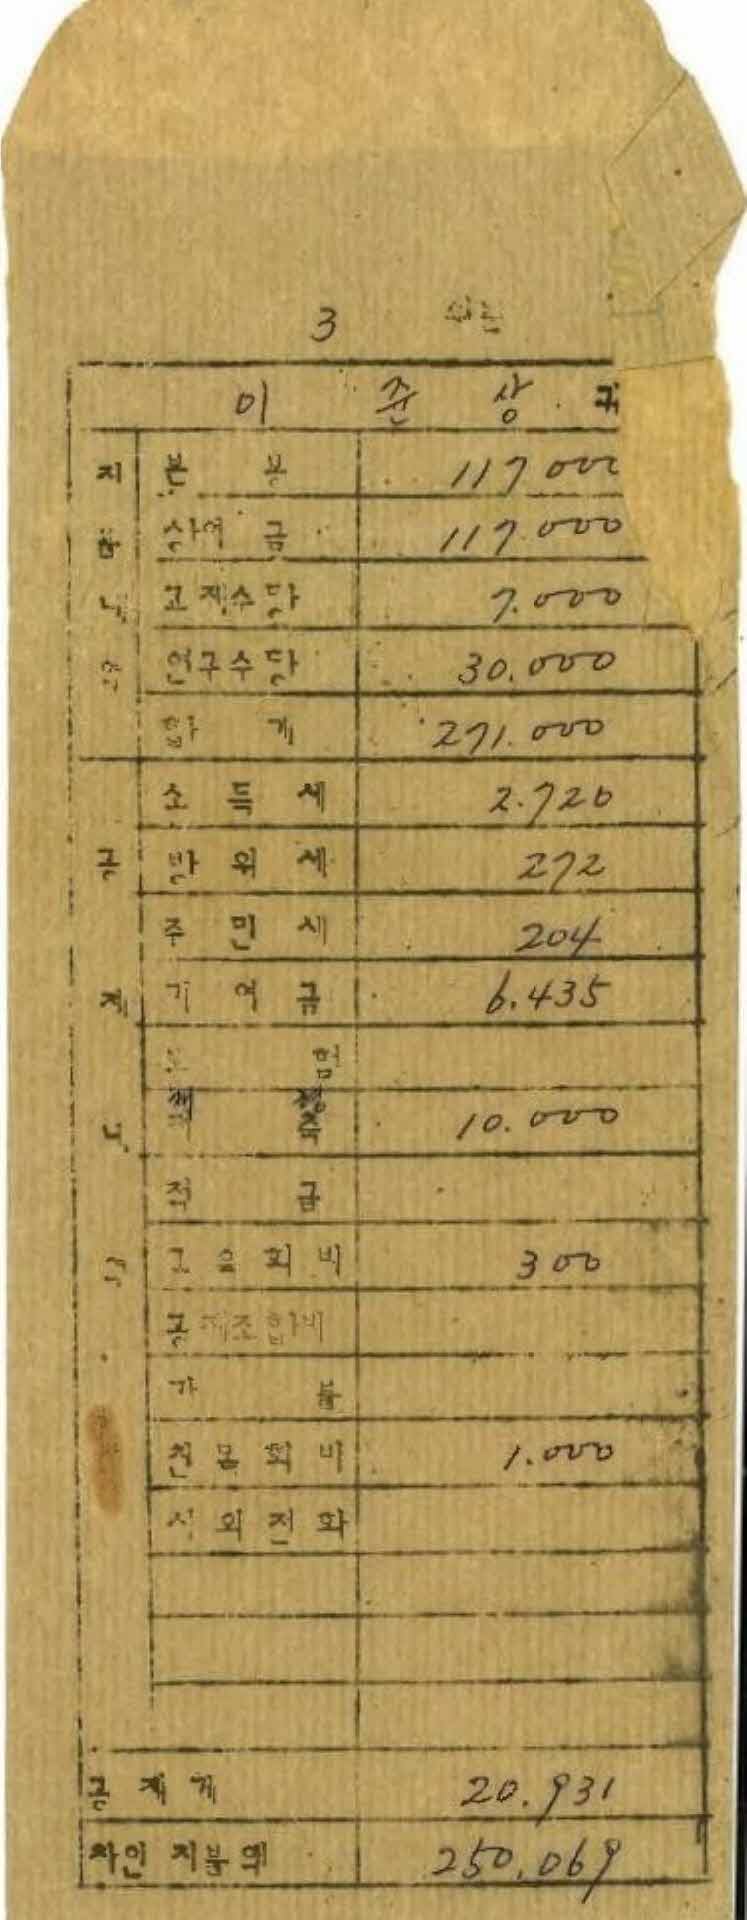 3 월분
이 준 상 귀
지 본 봉 117.000
불 상여 금 117.000
내 교재수당 7.000
역 연구수당 30.000
합 계 271.000
소 득 세 2.720
공 방 위 세 272
주 민 세 204
제 기 여 금 6.435
보 험
저 축 10.000
내
적 금
역 교 육 회 비 300
공제조합비
가 불
친 목 회 비 1.000
시 외 전 화
공 제 계 20.931
차인 지불액 250.069